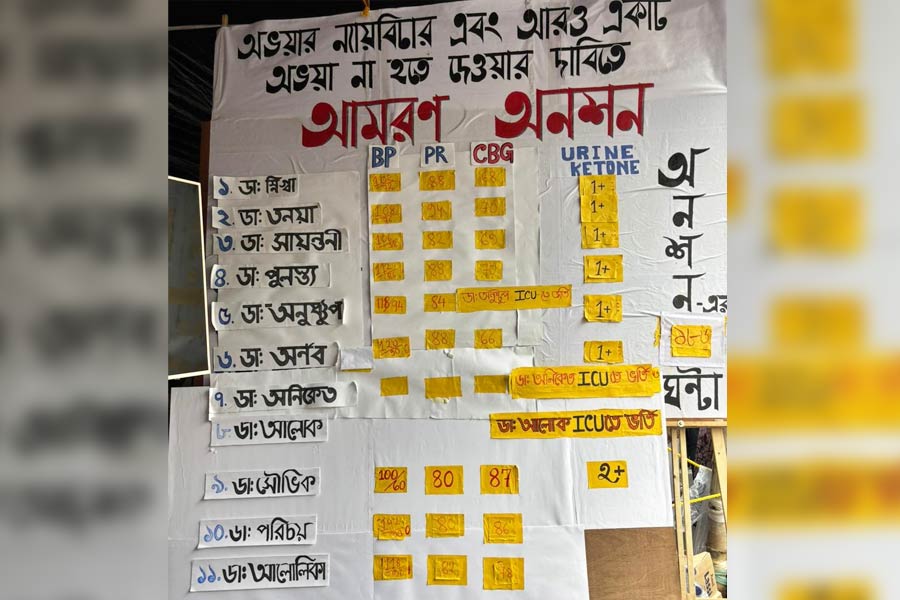 অভয়ার ন্যায়বিচার এবং আরও একটি
অভয়া না হতে দেওয়ার দাবিতে
আমরণ অনশন
BP PR CBG URINE KETONE
১. ডাঃ স্নিগ্ধা 88 68 1+
২. ডাঃ তনয়া 70 1+
৩. ডাঃ সায়ন্তনী 82 1+
৪. ডাঃ পুলস্ত্য 88 1+
৫. ডাঃ অনুষ্টুপ 84 ডাঃ অনুষ্টুপ ICU তে ভর্তি 1+
৬. ডাঃ অর্নব 88 1+
৭. ডাঃ অনিকেত ডাঃ অনিকেত ICUতে ভর্তি
৮. ডাঃ আলোক ডাঃ আলোক ICUতে ভর্তি
৯. ডাঃ মৌভিক 100/60 80 87 2+
১০. ডাঃ পরিচয়
১১. ডাঃ আলোলিকা
অনশন-এর
১৮৬
ঘন্টা